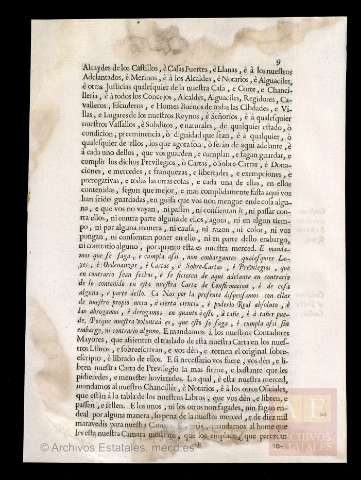 9
Alcaydes de los Castillos, è Casas Fuertes, è Llanas, è à los nuestros
Adelantados, è Merinos, è à los Alcaldes, è Notarios, è Alguaciles,
è otras Justicias qualesquier de la nuestra Casa, e Corte, e Chanci-
lleria, è à todos los Concejos, Alcaldes, Alguaciles, Regidores, Ca-
valleros, Escuderos, e Homes Buenos de todas las Cibdades, e Vi-
llas, e Lugares de los nuestros Reynos, è Señorios, è à qualesquier
nuestros Vassallos, è Subditos, e naturales, de qualquier estado, ò
condicion, preeminencia, ò dignidad que sean, è à qualquier, ò
qualesquier de ellos, los que agora son, ò seràn de aqui adelante, è
à cada uno dellos, que vos guarden, e cumplan, e fagan guardar, e
cumplir los dichos Previlegio, ò Cartas, ò sobre Cartas, è Dona-
ciones, e mercedes, e franquezas, e libertades, e exempciones, e
prerogativas, e todas las otras cosas, e cada una de ellas, en ellos
contenidas, segun que mejor, e mas complidamente fasta aqui vos
han seido guardadas, en guisa que vos non mengue ende cosa algu-
na, e que vos no vayan, ni passen, ni consientan ir, ni passar con-
tra ellos, ni contra parte alguna de ellos, agora, ni en algun tiem-
po, ni por alguna manera, ni causa, ni razon, ni color, ni vos
pongan, ni consientan poner en ello, ni en parte dello embargo,
ni contrario alguno, por quanto esta es nuestra merced. E manda-
mos que se faga, e cumpla assi, non embargantes qualesquier Le-
yes, è Ordenanzas, è Cartas, è Sobre-Cartas, è Previlegios, que
en contrario sean fechas, è se ficieren de aqui adelante en contrario
de lo contenido en esta nuestra Carta de Confirmacion, è de cosa
alguna, e parte dello. Ca Nos por la presente dispensamos con ellas
de nuestro proprio motu, è cierta ciencia, è poderio Real absoluto, è
las abrogamos, è derogamos, en quanto à esto, è atañe, è à tañer pue-
de. Porque nuestra voluntad es, que esto se faga, è cumpla assi sin
embargo, ni contrario alguno. E mandamos à los nuestros Contadores
Mayores, que assienten el traslado de esta nuestra Carta en los nues-
tros Libros, e sobreescrivan, e vos dèn, e tornen el original sobre-
escripto, è librado de ellos. E si necessario vos fuere, vos dèn, e li-
bren nuestra Carta de Previlegio la mas firme, e bastante que les
pidieredes, e menester hovieredes. La qual, è esta nuestra merced,
mandamos al nuestro Chancillèr, è Notarios, è à los otros Oficiales,
que estàn à la tabla de los nuestros Libros, que vos dèn, e libren, e
passen, è sellen. E los unos, ni los otros non fagades, nin fagan en-
deal por alguna manera, so pena de la nuestra merced, e de diez mil
maravedis para nuestra Camara
Archivos Estatales, mecd.es
ARCHIVOS
ESTATALES